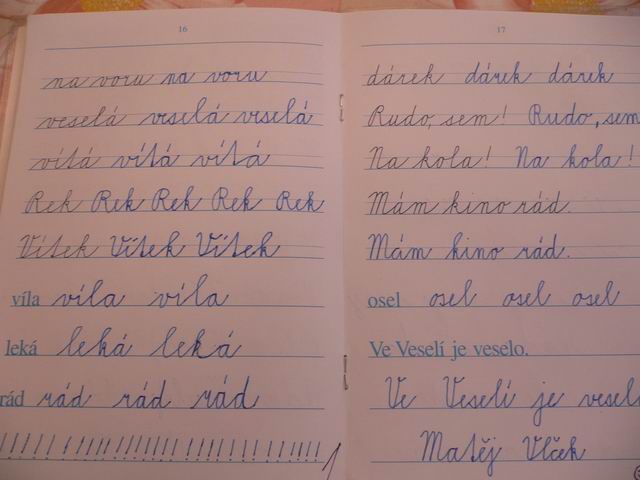 16
na voru na voru
veselá veselá veselá
vítá vítá vítá
Rek Rek Rek Rek Rek
Vítek Vítek Vítek
víla víla víla
leká leká leká
rád rád rád rád
!!!!!!!!!!!!!!!!!!!!!!!!!!!!
17
dárek dárek dárek
Rudo, sem! Rudo, sem
Na kola! Na kola!
Mám kino rád.
Mám kino rád.
osel osel osel osel
Ve Veselí je veselo.
Ve Veselí je vesel
Matěj Vlček